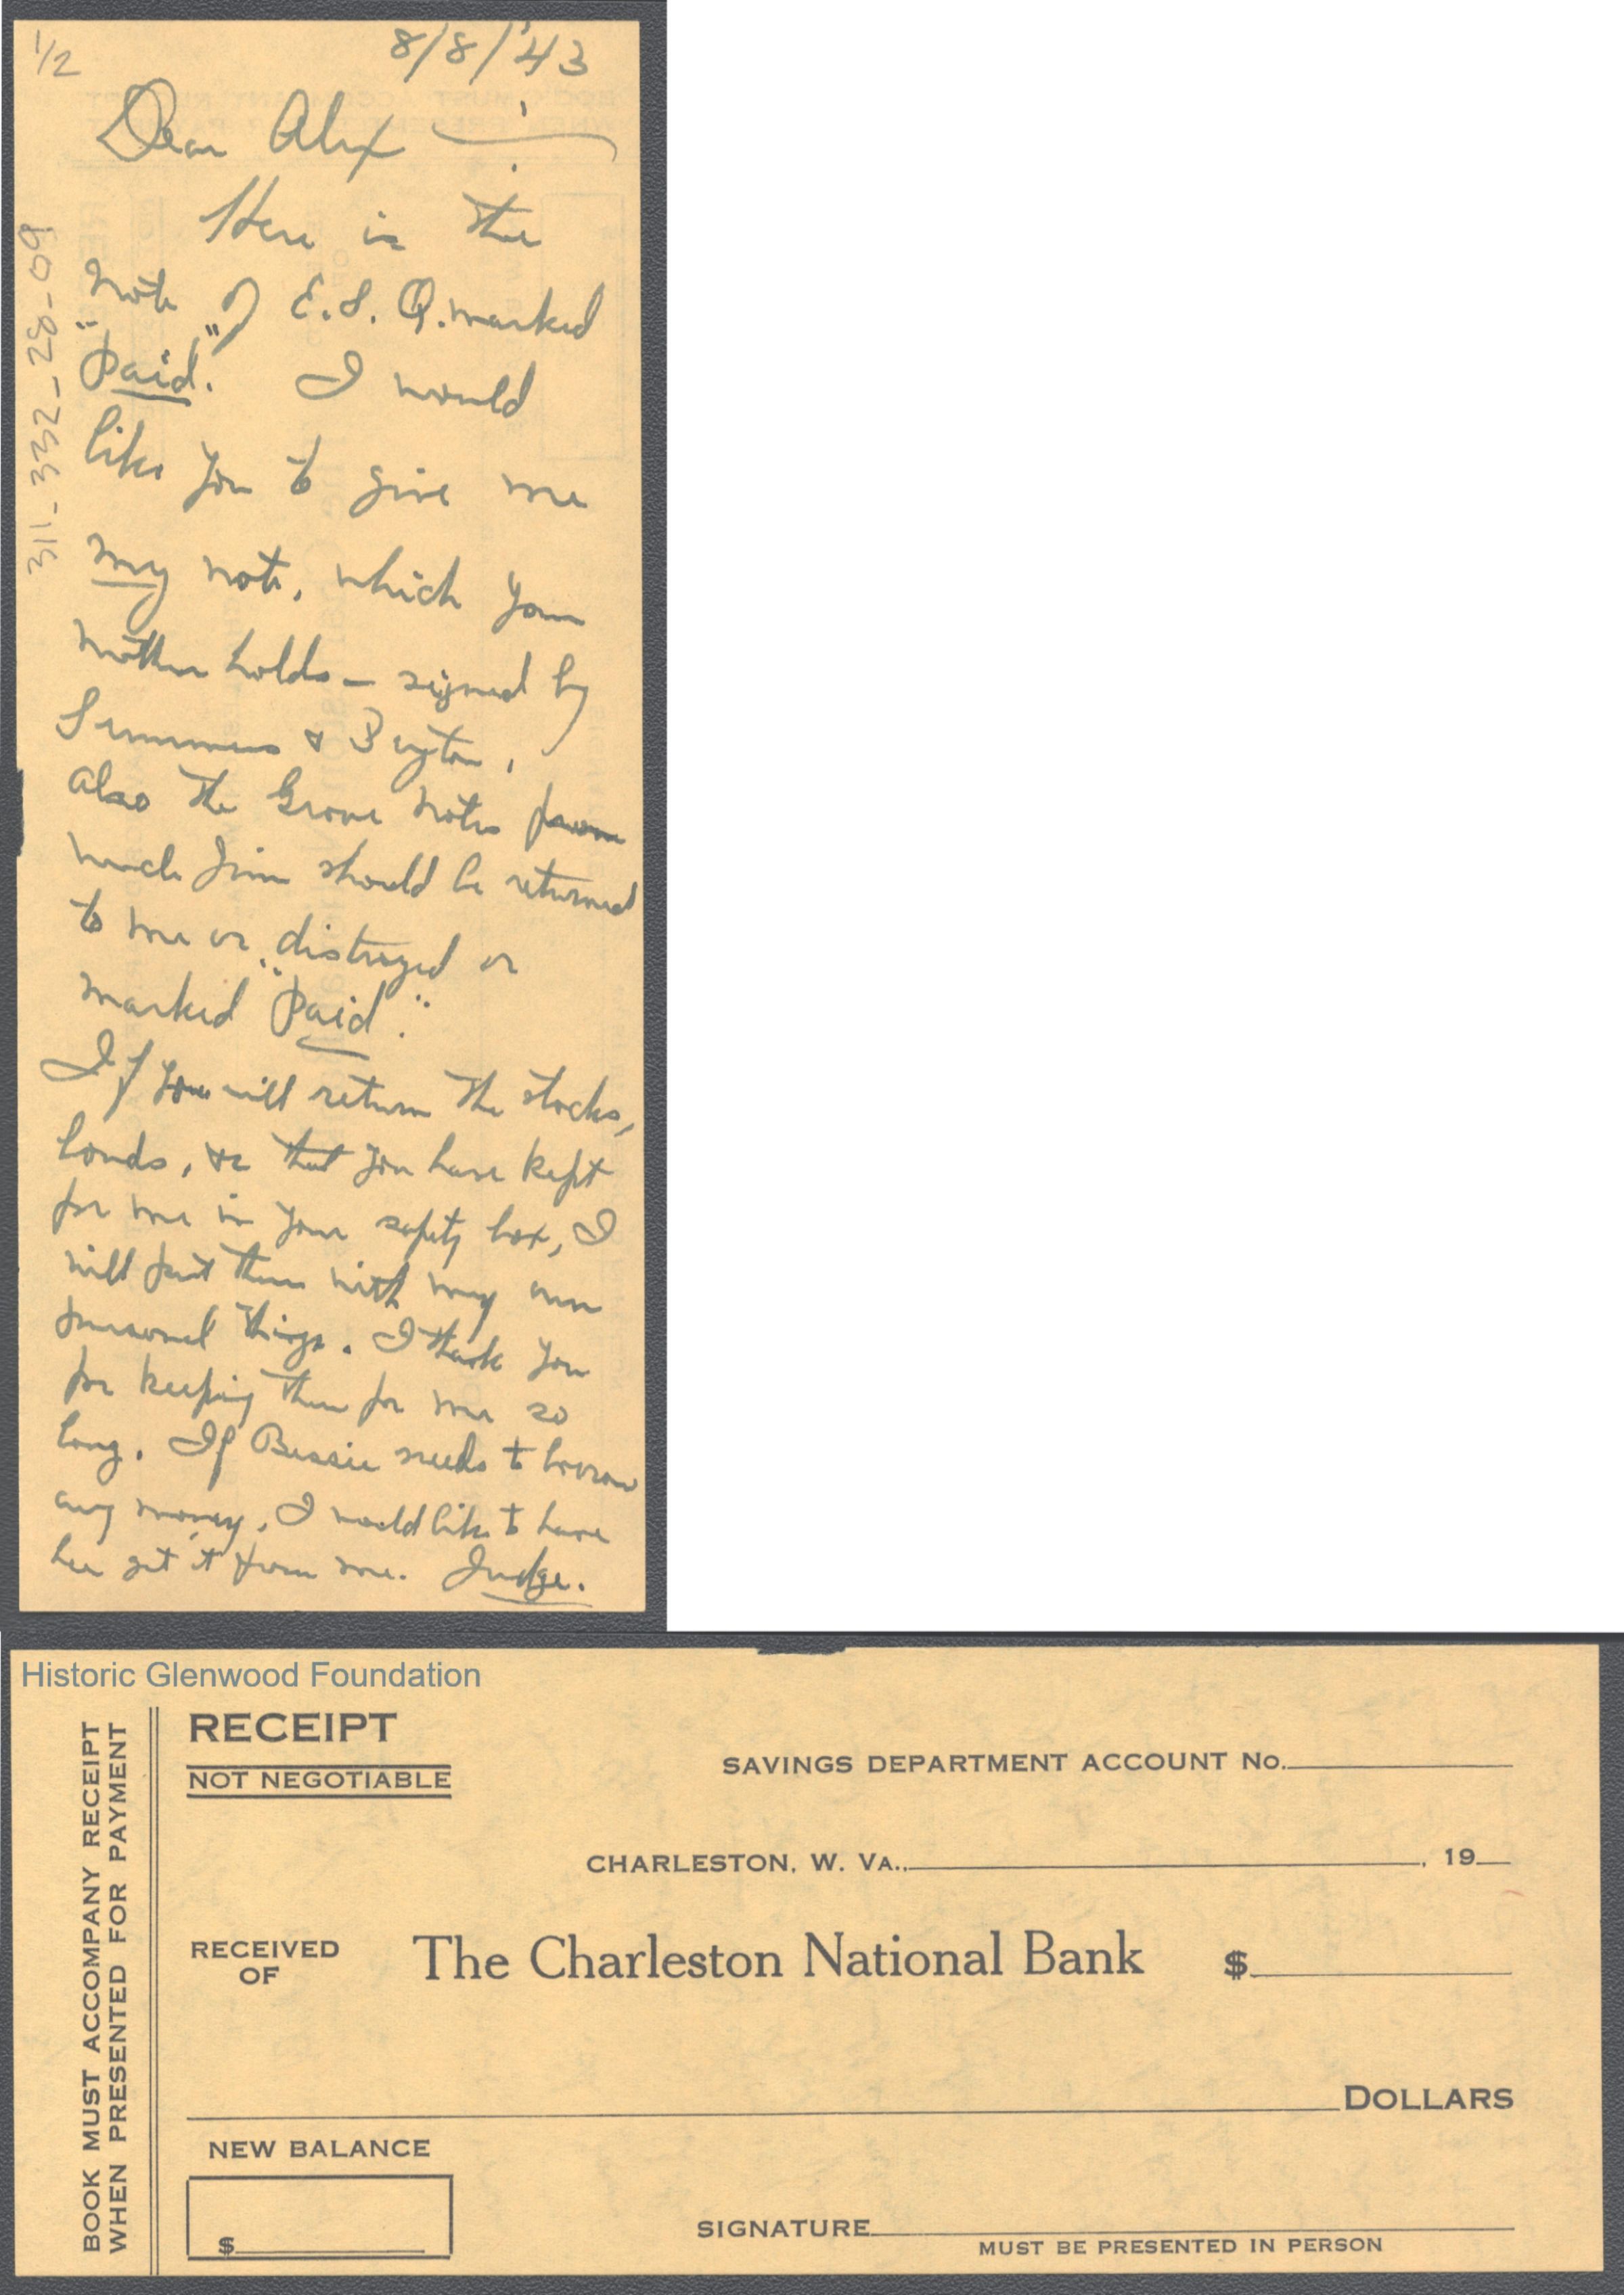 1/2
8/8/'43
Dear Alex —
Here is the
note of E.S.Q. marked
"Paid". I would
like you to give me
my note, which your
mother holds — signed by
Summers &
also the Grove notes from
uncle Jim should be returned
to me or distroyed or
marked "Paid".
If you will return the stocks,
bonds, &c that you have kept
for me in your safety box, I
will put them with my own
personal things. I thank you
for keeping them for me so
long. If Bessie needs to borrow
any money, I would like to have
her get it from me. Judge.
311-332-28-09
Historic Glenwood Foundation
BOOK MUST ACCOMPANY RECEIPT
WHEN PRESENTED FOR PAYMENT
RECEIPT
NOT NEGOTIABLE
SAVINGS DEPARTMENT ACCOUNT No.
CHARLESTON, W. VA., , 19
RECEIVED
OF
The Charleston National Bank $
DOLLARS
NEW BALANCE
$
SIGNATURE
MUST BE PRESENTED IN PERSON